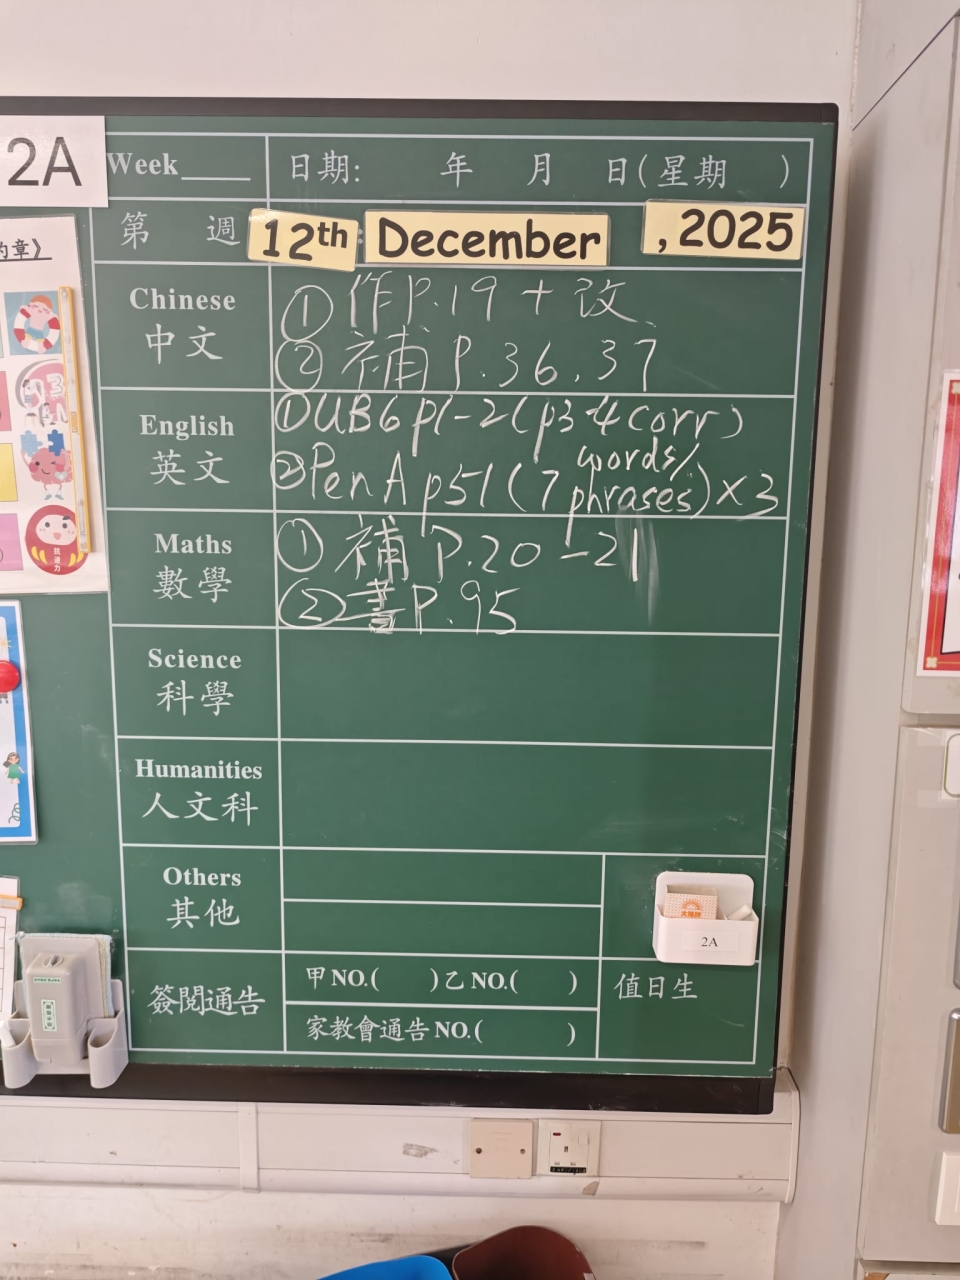 2A
Week____
日期: 年 月 日(星期 )
第 週
12th December , 2025
約章》
Chinese
中文
① 作P.19 + 改
② 補 P.36, 37
English
英文
① UB6 p1-2 (p3-4 corr)
② Pen A p51 (7 words/phrases) x 3
Maths
數學
① 補 P.20-21
② 書 P.95
Science
科學
Humanities
人文科
Others
其他
2A
簽閱通告
甲 NO.( ) 乙 NO.( )
家教會通告 NO.( )
值日生
抗逆力